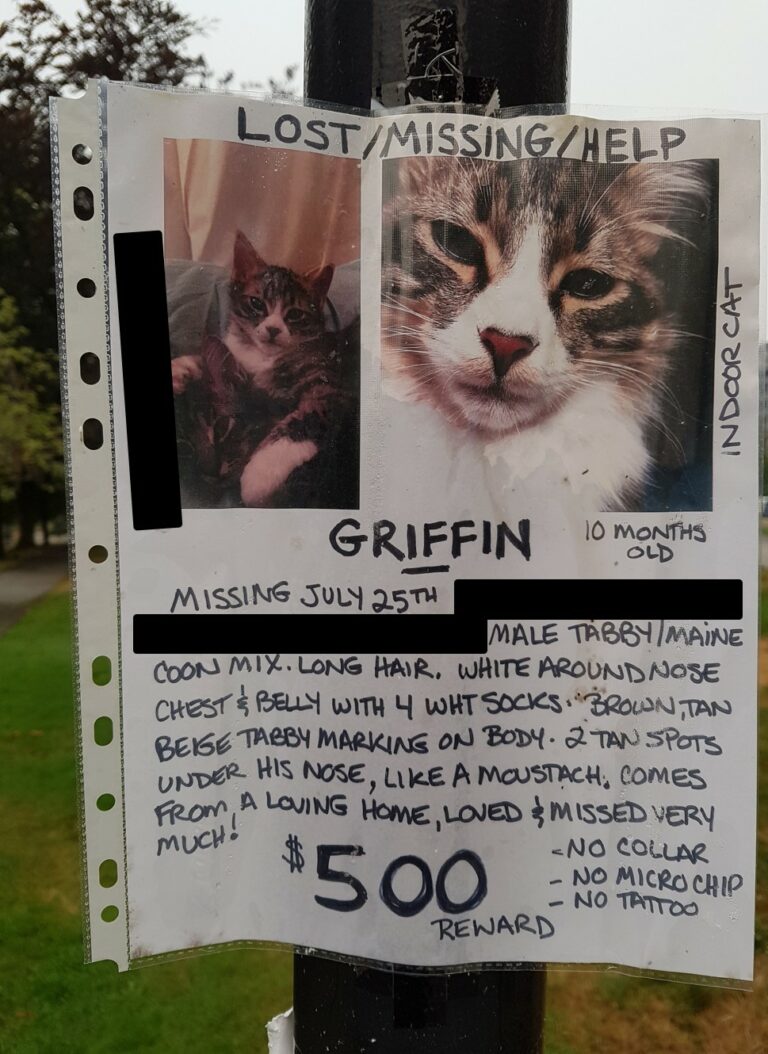 LOST/MISSING/HELP
INDOOR CAT
GRIFFIN
10 MONTHS
OLD
MISSING JULY 25TH
MALE TABBY/MAINE
COON MIX. LONG HAIR. WHITE AROUND NOSE
CHEST & BELLY WITH 4 WHT SOCKS. BROWN, TAN
BEIGE TABBY MARKING ON BODY. 2 TAN SPOTS
UNDER HIS NOSE, LIKE A MOUSTACH. COMES
FROM A LOVING HOME, LOVED & MISSED VERY
MUCH!
$500
REWARD
- NO COLLAR
- NO MICRO CHIP
- NO TATTOO